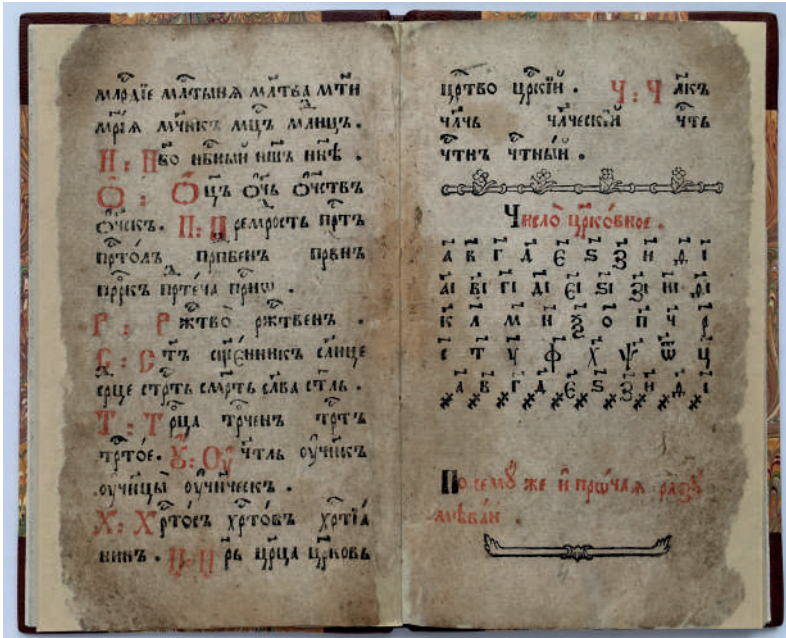 мл҃рдїе мл҃тынѧ мл҃тва мт҃и
мр҃їѧ мч҃нкъ мц҃ъ млⷣнцъ.
Н : Нб҃о нб҃ный нш҃ъ нн҃ѣ .
Ѿ : Ѻц҃ъ ѻч҃ь ѻч҃ств
ѻч҃скъ. П : Премр҃ость прⷭ҇тъ
прⷭ҇то́лъ прпⷣбенъ првⷣнъ
прⷪ҇ркъ прⷣте́ча прⷭ҇нѡ .
Р : Ржⷭ҇тво̀ ржⷭ҇твенъ .
С : Ст҃ъ сщ҃е́нникъ сл҃нце
срⷣце стрⷭ҇ть см҃рть сл҃ва сп҃ль .
Т : Трⷪ҇ца трⷪ҇ченъ трⷭ҇тъ
трⷭ҇то́е. Ꙋ : Оу҆чт҃ль оу҆чн҃къ
оу҆чн҃цы̀ оу҆чн҃ческъ .
Х : Хрⷭ҇то́съ хрⷭ҇то́въ хрⷭ҇тїа́
нинъ . Ц : Цр҃ь цр҃ца цр҃ковь
црⷭ҇тво црⷭ҇кїй . Ч : Ч л҃къ
чл҃чь чл҃ческїй чⷭ҇ть
чⷭ҇тнъ чⷭ҇тны́й .
Число̀ цр҃ко́вное .
а҃ в҃ г҃ д҃ є҃ ѕ҃ з҃ и҃ ѳ҃ і҃
а҃і в҃і г҃і д҃і є҃і ѕ҃і з҃і и҃і ѳ҃і
к҃ л҃ м҃ н҃ ѯ҃ о҃ п҃ ч҃ р҃
с҃ т҃ у҃ ф҃ х҃ ѱ҃ ѿ҃ ц҃
҂а҃ ҂в҃ ҂г҃ ҂д҃ ҂є҃ ҂ѕ҃ ҂з҃ ҂и҃ ҂ѳ҃ ҂і҃
По семꙋ̀ же и҆ прѡ́чаѧ разꙋ
мѣва́й .